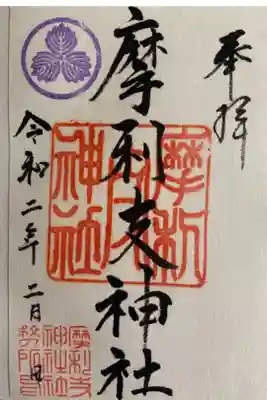 奉拝
摩利支神社
令和二年二月
摩利支神社
摩利支
神社社
務所